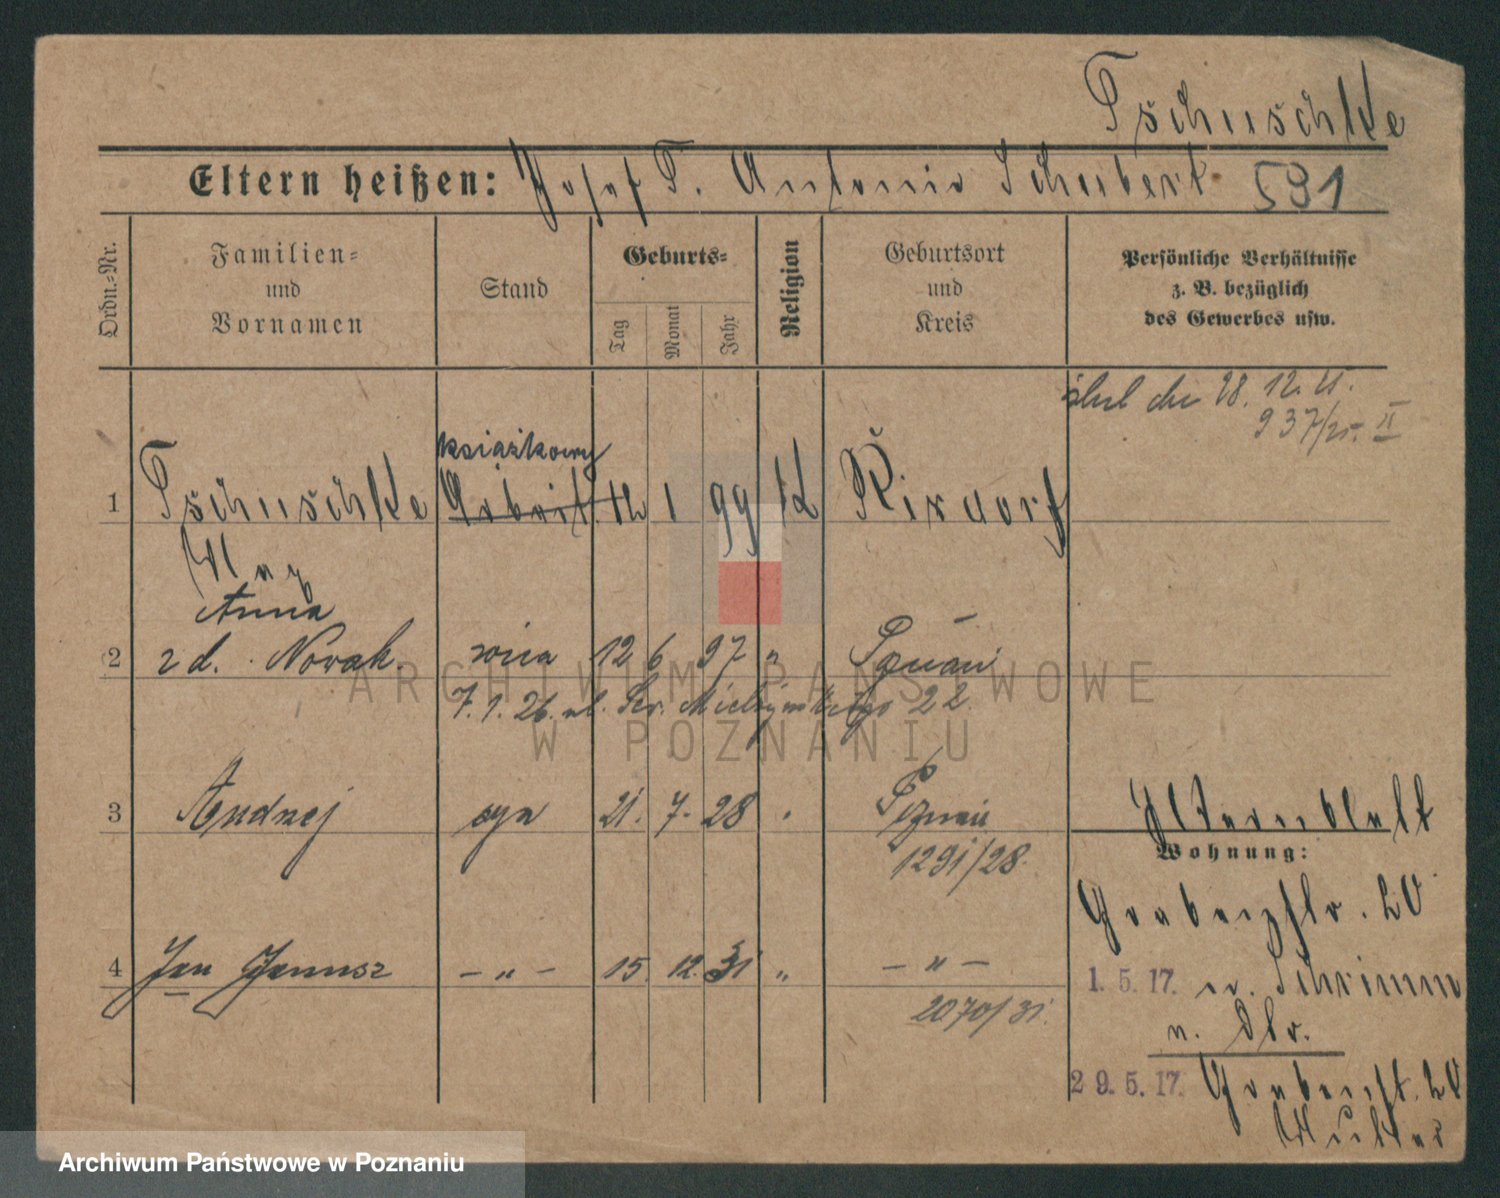 Tschuschke
Eltern heißen: Josef T. Antonie Schubert 591
Ordn.-Nr.
Familien-
und
Vornamen
Stand
Geburts-
Tag
Monat
Jahr
Religion
Geburtsort
und
Kreis
Persönliche Verhältnisse
z. B. bezüglich
des Gewerbes usw.
28. 12.
książkowy
1 Tschuschke Arbeit. 12 1 99 K Rixdorf
Max
Anna
2 z d. Nowak. żona 12 6 97 " Poznań
7.1.26. ul. Sew. Mielżyńskiego 22
3 Andrzej syn 21. 7. 28 Poznań
1291/28.
Elternblatt
Wohnung:
Grabenstr. 20
4 Jan Janusz – " – 15. 12. 31 " – " –
2070/31.
1. 5. 17. n. Schrimm
29. 5. 17. Grabenst. 20
Mutter
ARCHIWUM PAŃSTWOWE
W POZNANIU
Archiwum Państwowe w Poznaniu